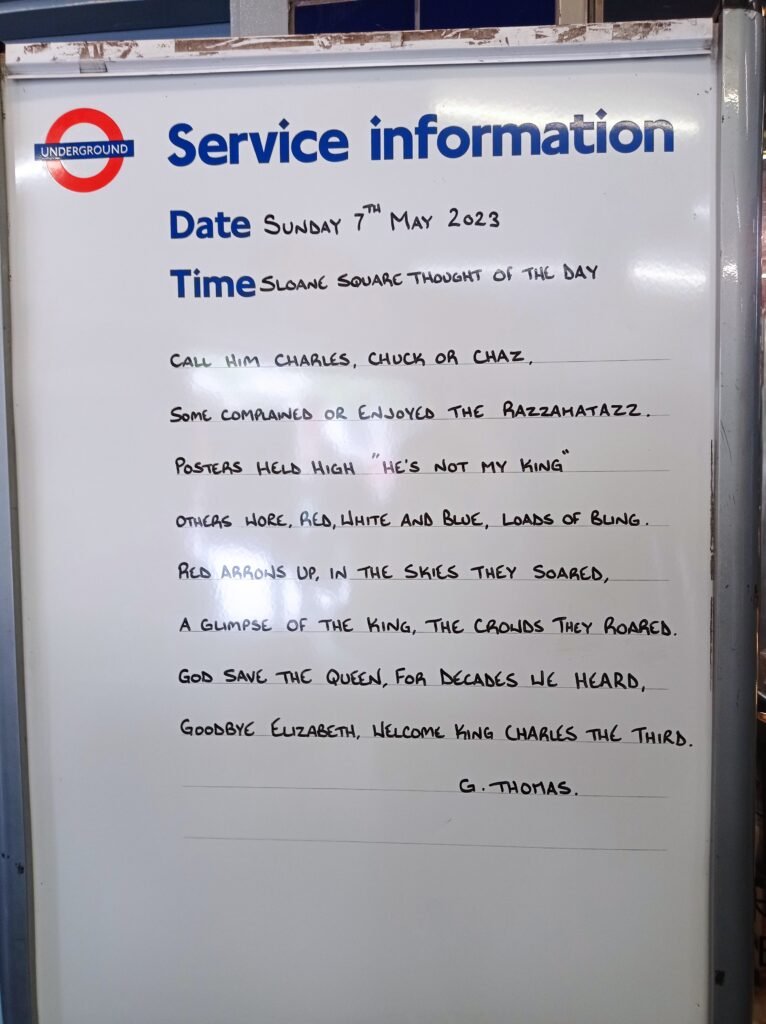 UNDERGROUND
Service information
Date SUNDAY 7TH MAY 2023
Time SLOANE SQUARE THOUGHT OF THE DAY
CALL HIM CHARLES, CHUCK OR CHAZ,
SOME COMPLAINED OR ENJOYED THE RAZZAMATAZZ.
POSTERS HELD HIGH "HE'S NOT MY KING"
OTHERS WORE, RED, WHITE AND BLUE, LOADS OF BLING.
RED ARROWS UP, IN THE SKIES THEY SOARED,
A GLIMPSE OF THE KING, THE CROWDS THEY ROARED.
GOD SAVE THE QUEEN, FOR DECADES WE HEARD,
GOODBYE ELIZABETH, WELCOME KING CHARLES THE THIRD.
G. THOMAS.